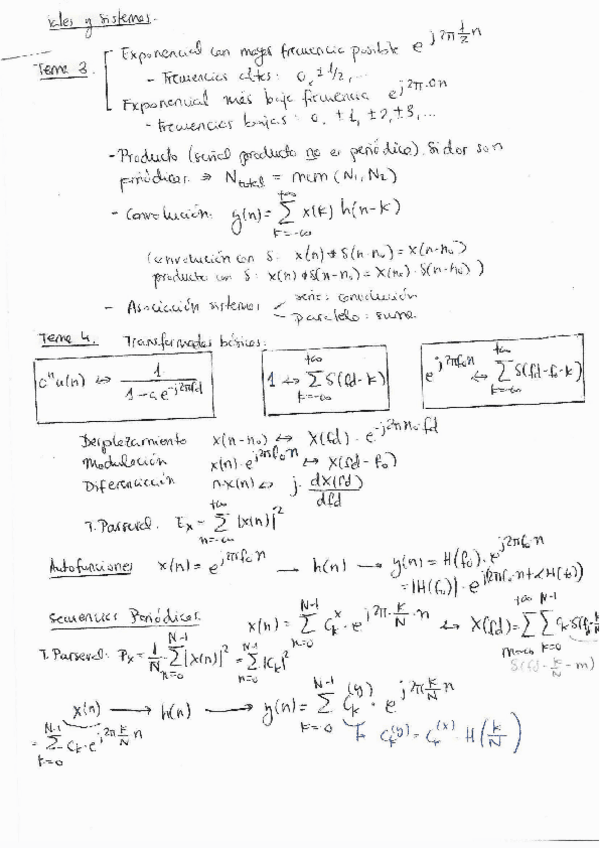 iales y sistemas.
Tema 3. Exponencial con mayor frecuencia posible e^{j2π\frac{1}{2}n}
- Frecuencias altas: 0, ± 1/2, ...
Exponencial más baja frecuencia e^{j2π·0n}
- Frecuencias bajas: 0, ±1, ±2, ±3, ...
- Producto (señal producto no es periódica). Si dos son
periódicas ⇒ N_{total} = mcm (N_1, N_2)
- Convolución: y(n) = \sum_{k=-∞}^{+∞} x(k) h(n-k)
(convolución con δ: x(n) * δ(n-n_0) = x(n-n_0)
producto con δ: x(n) * δ(n-n_0) = x(n_0) · δ(n-n_0))
- Asociación sistemas serie: convolución
paralelo: suma
Tema 4. Transformadas básicas:
a^n u(n) ↔ \frac{1}{1-a e^{-j2πfd}}
1 ↔ \sum_{k=-∞}^{+∞} δ(fd-k)
e^{j2πf_0n} ↔ \sum_{k=-∞}^{+∞} δ(fd-f_0-k)
Desplazamiento x(n-n_0) ↔ X(fd) · e^{-j2πn_0·fd}
Modulación x(n)·e^{j2πf_0n} ↔ X(fd-f_0)
Diferenciación n·x(n) ↔ j· \frac{dX(fd)}{dfd}
T. Parseval: E_x = \sum_{n=-∞}^{+∞} |x(n)|^2
Autofunciones x(n) = e^{j2πf_0n} → h(n) → y(n) = H(f_0)·e^{j2πf_0n}
= |H(f_0)| · e^{j(2πf_0n+∠H(f_0))}
Secuencias Periódicas. x(n) = \sum_{k=0}^{N-1} C_k^x · e^{j2π·\frac{k}{N}·n} ↔ X(fd) = \sum_{m=-∞}^{+∞} \sum_{k=0}^{N-1} C_k δ(fd-\frac{k}{N}
δ(fd-\frac{k}{N}-m)
T. Parseval: P_x = \frac{1}{N} · \sum_{n=0}^{N-1} |x(n)|^2 = \sum_{k=0}^{N-1} |C_k|^2
x(n) → h(n) → y(n) = \sum_{k=0}^{N-1} C_k^{(y)} · e^{j2π\frac{k}{N}n}
= \sum_{k=0}^{N-1} C_k·e^{j2π\frac{k}{N}n}
C_k^{(y)} = C_k^{(x)} · H(\frac{k}{N})